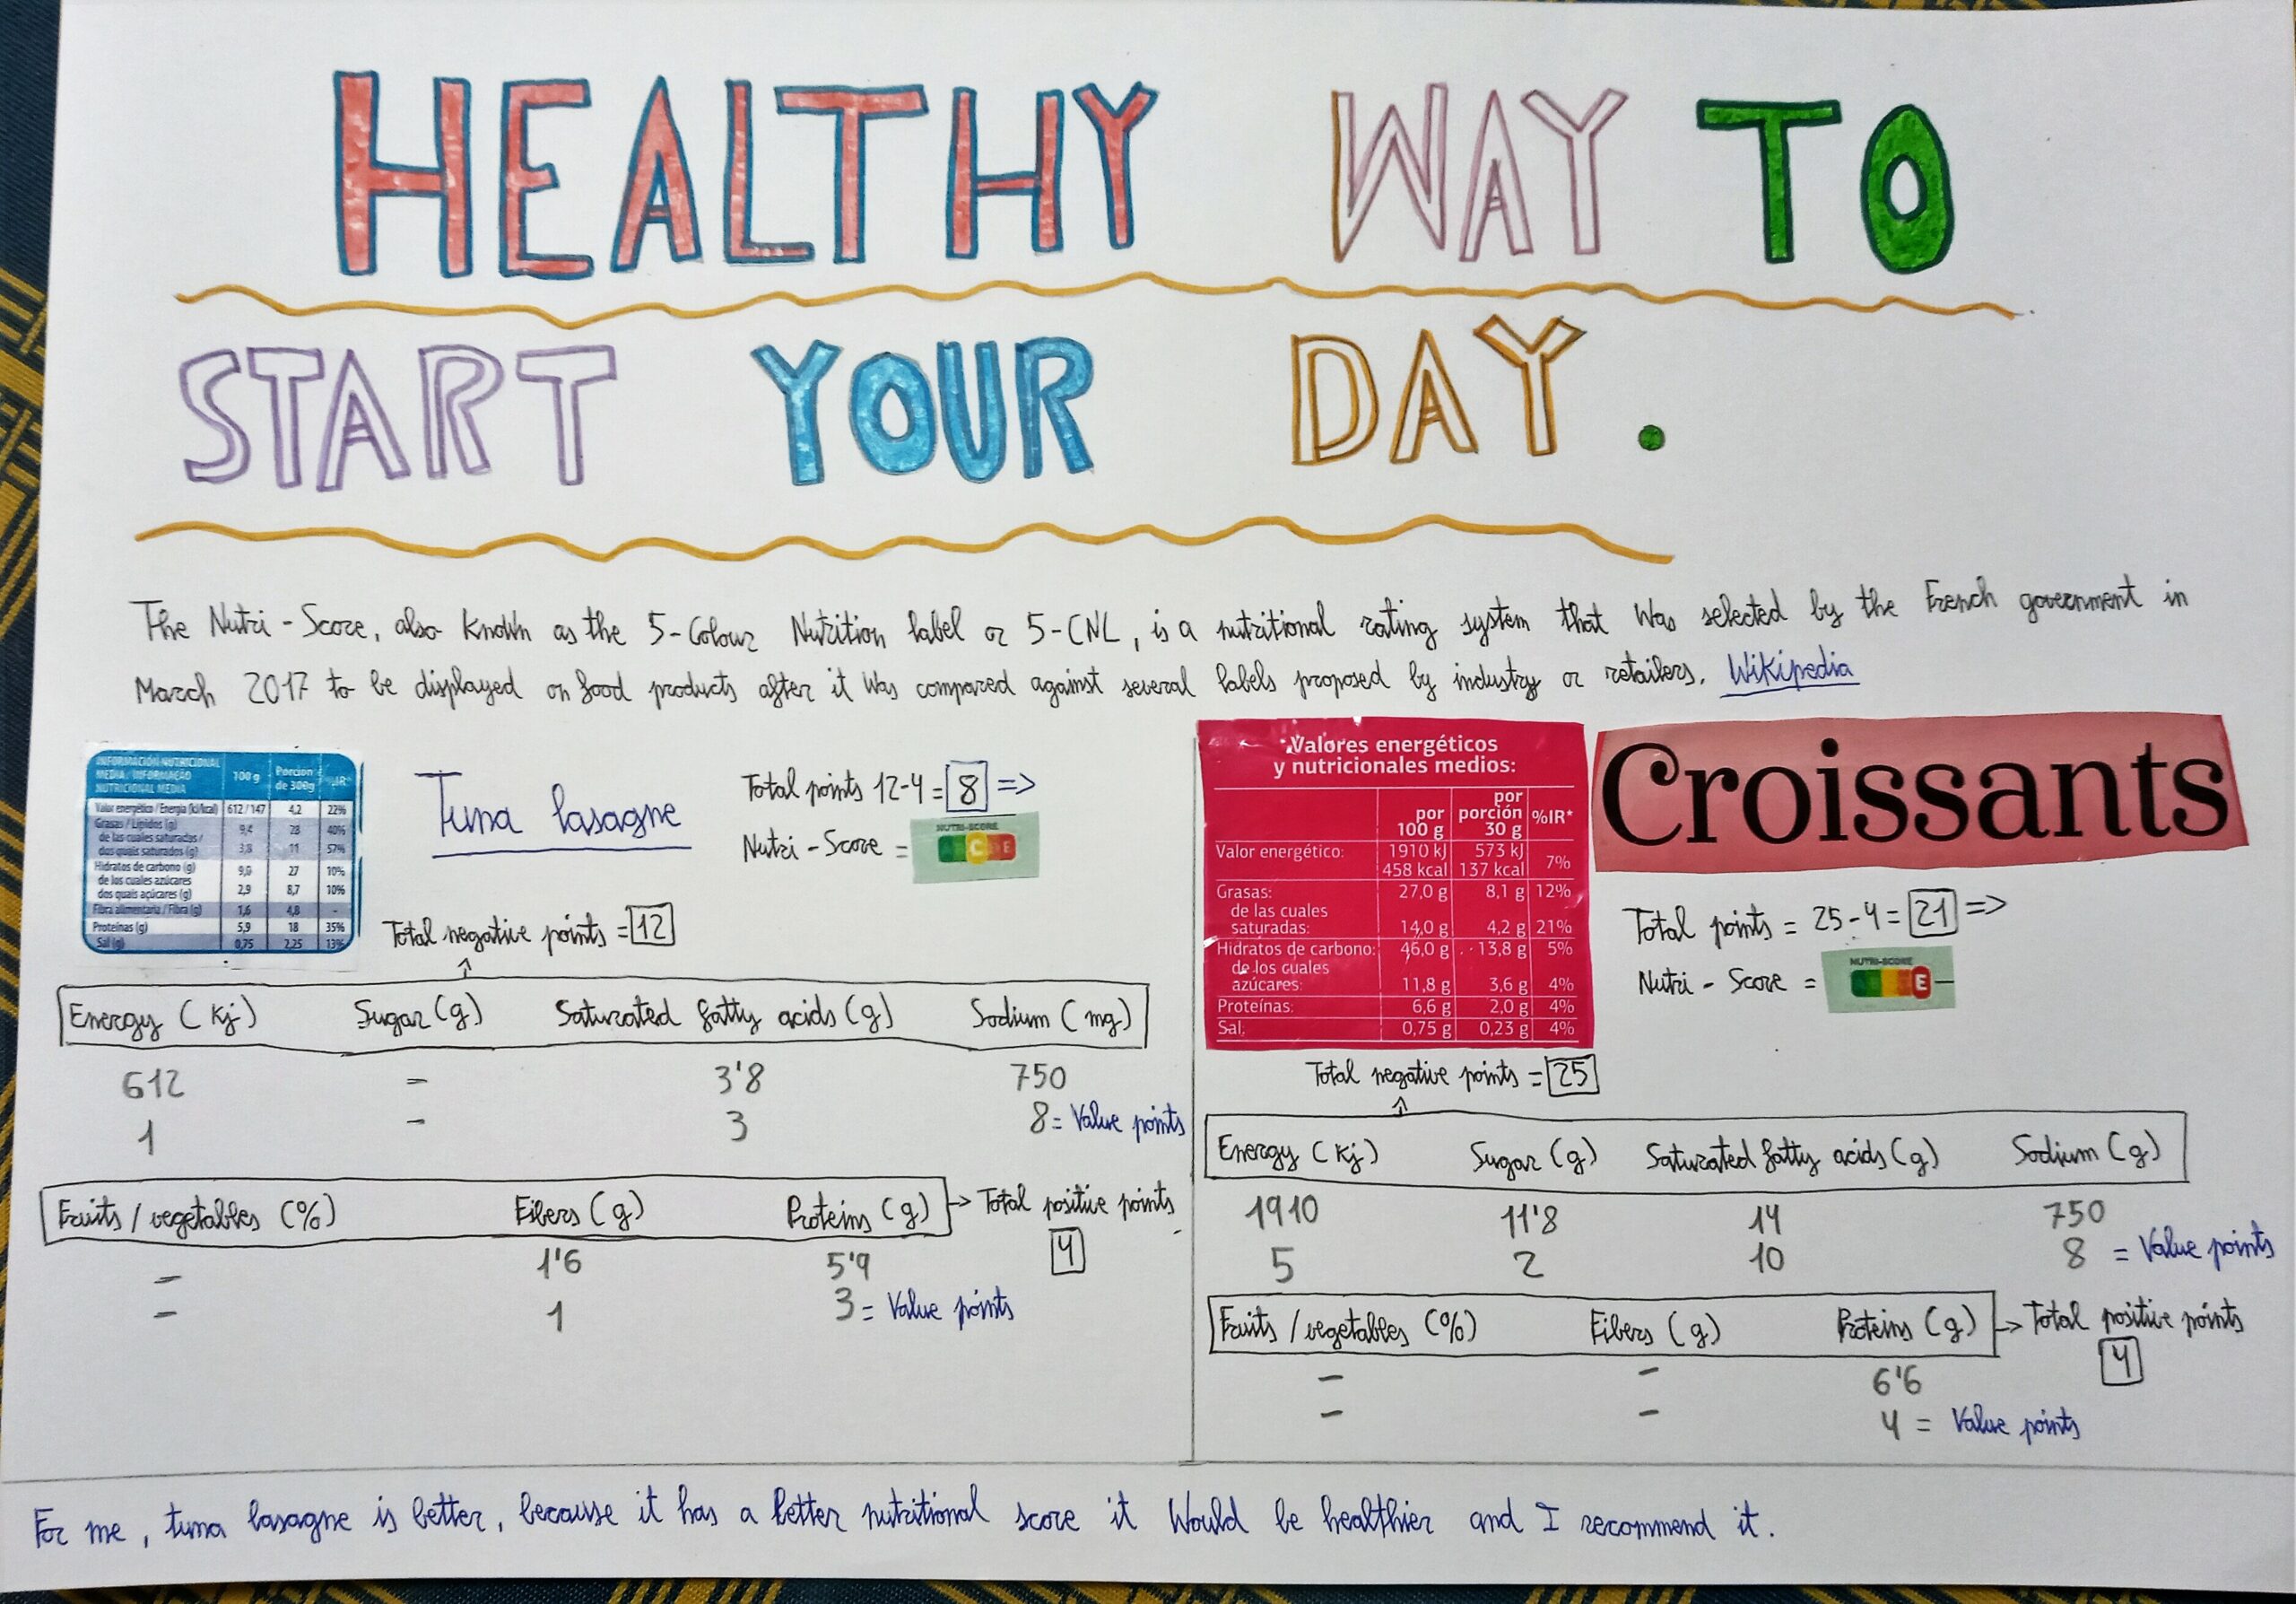 HEALTHY WAY TO
START YOUR DAY.
The Nutri-Score, also known as the 5-Colour Nutrition label or 5-CNL, is a nutritional rating system that was selected by the French government in
March 2017 to be displayed on food products after it was compared against several labels proposed by industry or retailers. Wikipedia
INFORMACIÓN NUTRICIONAL
MEDIA / INFORMAÇÃO
NUTRICIONAL MÉDIA
100 g
Porción
de 300g
%IR*
Valor energético / Energia (kJ/kcal) 612 / 147 4,2 22%
Grasas / Lípidos (g) 9,4 28 40%
de las cuales saturadas /
dos quais saturados (g) 3,8 11 57%
Hidratos de carbono (g) 9,0 27 10%
de los cuales azúcares
dos quais açúcares (g) 2,9 8,7 10%
Fibra alimentaria / Fibra (g) 1,6 4,8 -
Proteínas (g) 5,9 18 35%
Sal (g) 0,75 2,25 13%
Tuna lasagne
Total points 12-4 = 8 =>
Nutri-Score =
NUTRI-SCORE
C E
Total negative points = 12
Energy (Kj) Sugar (g) Saturated fatty acids (g) Sodium (mg)
612 - 3'8 750
1 - 3 8 = Value points
Fruits / vegetables (%) Fibers (g) Proteins (g) -> Total positive points
4
- 1'6 5'9
- 1 3 = Value points
Valores energéticos
y nutricionales medios:
por
100 g
por
porción
30 g
%IR*
Valor energético: 1910 kJ 573 kJ
458 kcal 137 kcal 7%
Grasas: 27,0 g 8,1 g 12%
de las cuales
saturadas: 14,0 g 4,2 g 21%
Hidratos de carbono: 46,0 g 13,8 g 5%
de los cuales
azúcares: 11,8 g 3,6 g 4%
Proteínas: 6,6 g 2,0 g 4%
Sal: 0,75 g 0,23 g 4%
Croissants
Total points = 25-4 = 21 =>
Nutri-Score =
NUTRI-SCORE
E
Total negative points = 25
Energy (Kj) Sugar (g) Saturated fatty acids (g) Sodium (g)
1910 11'8 14 750
5 2 10 8 = Value points
Fruits / vegetables (%) Fibers (g) Proteins (g) -> Total positive points
4
- - 6'6
- - 4 = Value points
For me, tuna lasagne is better, because it has a better nutritional score it would be healthier and I recommend it.